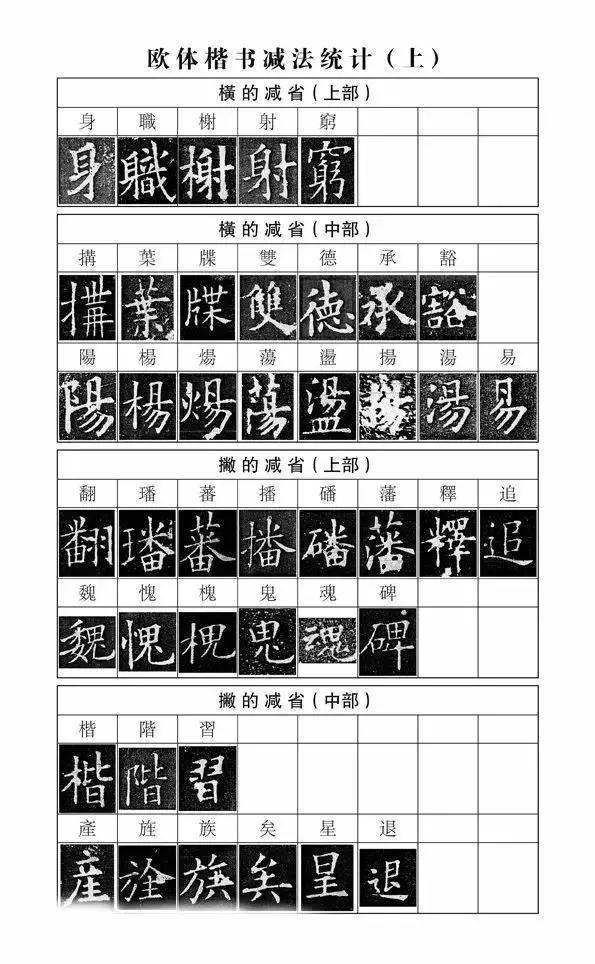 欧体楷书减法统计（上）
横的减省（上部）
身 職 榭 射 窮
身 職 榭 射 窮
横的减省（中部）
搆 葉 牒 雙 德 承 豁
搆 葉 牒 雙 德 承 豁
陽 楊 煬 蕩 盪 揚 湯 易
陽 楊 煬 蕩 盪 揚 湯 易
撇的减省（上部）
翻 璠 蕃 播 磻 藩 釋 追
翻 璠 蕃 播 磻 藩 釋 追
魏 愧 槐 鬼 魂 碑
魏 愧 槐 鬼 魂 碑
撇的减省（中部）
楷 階 習
楷 階 習
產 旌 族 矣 星 退
產 旌 族 矣 星 退